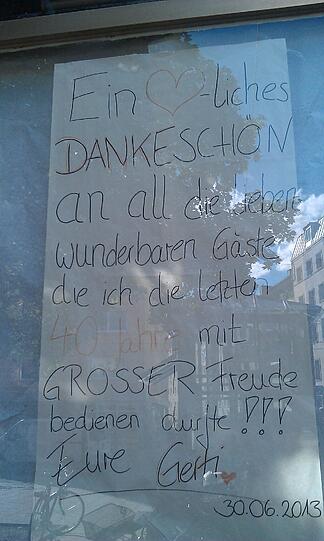 Ein ♡-liches
DANKESCHÖN
an all die lieben
wunderbaren Gäste
die ich die letzten
40 Jahre mit
GROSSER Freude
bedienen durfte !!!
Eure Gerti ♥
30.06.2013